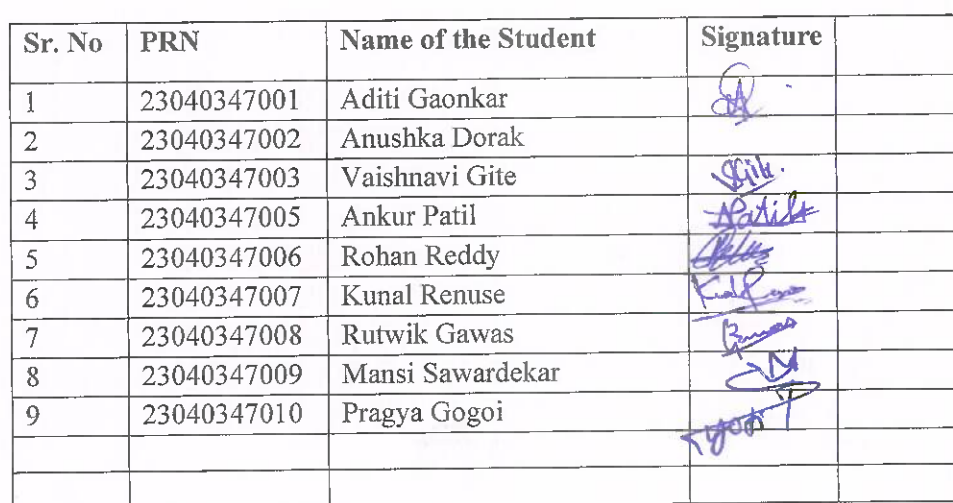 Sr. No PRN Name of the Student Signature
1 23040347001 Aditi Gaonkar
2 23040347002 Anushka Dorak
3 23040347003 Vaishnavi Gite
4 23040347005 Ankur Patil APatil
5 23040347006 Rohan Reddy
6 23040347007 Kunal Renuse
7 23040347008 Rutwik Gawas
8 23040347009 Mansi Sawardekar
9 23040347010 Pragya Gogoi